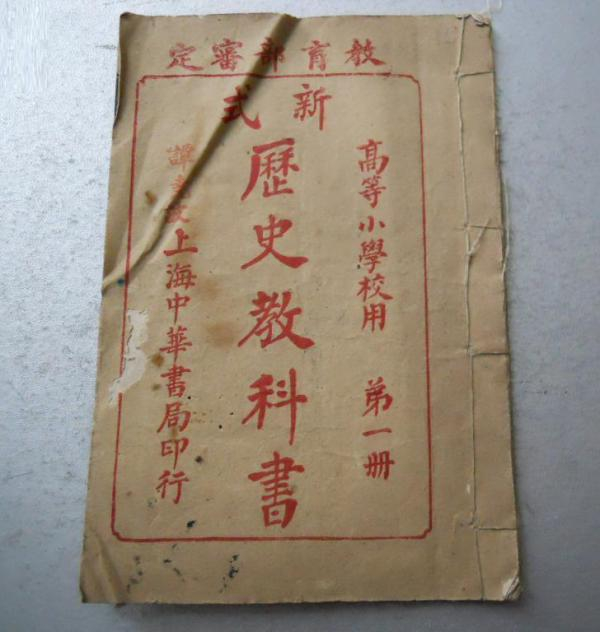 教育部審定
新式
高等小學校用 第一冊
歷史教科書
譚 上海中華書局印行